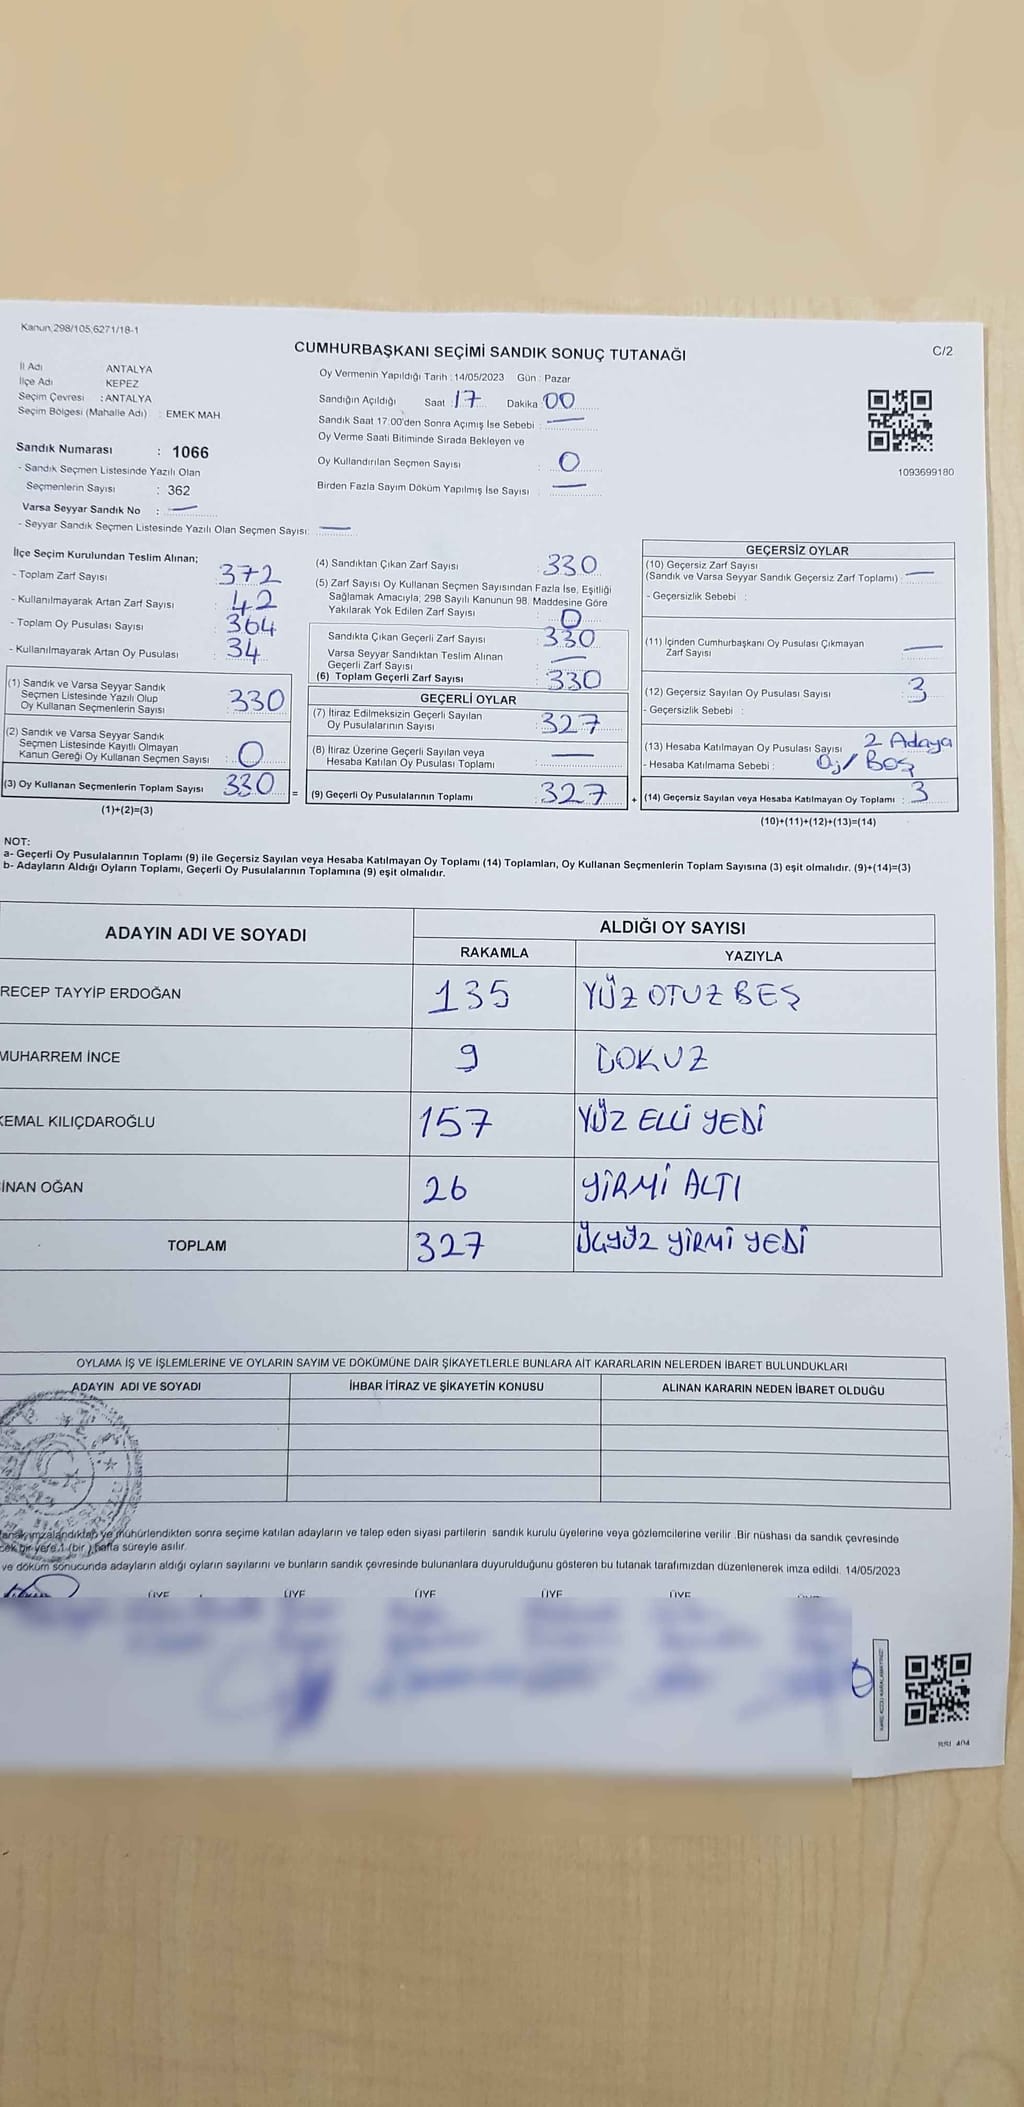 Kanun,298/105,6271/18-1
CUMHURBAŞKANI SEÇİMİ SANDIK SONUÇ TUTANAĞI
C/2
İl Adı ANTALYA
İlçe Adı KEPEZ
Seçim Çevresi : ANTALYA
Seçim Bölgesi (Mahalle Adı) : EMEK MAH
Sandık Numarası : 1066
- Sandık Seçmen Listesinde Yazılı Olan
Seçmenlerin Sayısı : 362
Varsa Seyyar Sandık No : —
- Seyyar Sandık Seçmen Listesinde Yazılı Olan Seçmen Sayısı: —
Oy Vermenin Yapıldığı Tarih : 14/05/2023 Gün : Pazar
Sandığın Açıldığı Saat : 17 Dakika : 00
Sandık Saat 17:00'den Sonra Açımış İse Sebebi : —
Oy Verme Saati Bitiminde Sırada Bekleyen ve
Oy Kullandırılan Seçmen Sayısı : 0
Birden Fazla Sayım Döküm Yapılmış İse Sayısı : —
1093699180
İlçe Seçim Kurulundan Teslim Alınan;
- Toplam Zarf Sayısı : 372
- Kullanılmayarak Artan Zarf Sayısı : 42
- Toplam Oy Pusulası Sayısı : 364
- Kullanılmayarak Artan Oy Pusulası : 34
(1) Sandık ve Varsa Seyyar Sandık
Seçmen Listesinde Yazılı Olup
Oy Kullanan Seçmenlerin Sayısı : 330
(2) Sandık ve Varsa Seyyar Sandık
Seçmen Listesinde Kayıtlı Olmayan
Kanun Gereği Oy Kullanan Seçmen Sayısı : 0
(3) Oy Kullanan Seçmenlerin Toplam Sayısı : 330 =
(1)+(2)=(3)
(4) Sandıktan Çıkan Zarf Sayısı : 330
(5) Zarf Sayısı Oy Kullanan Seçmen Sayısından Fazla İse, Eşitliği
Sağlamak Amacıyla, 298 Sayılı Kanunun 98. Maddesine Göre
Yakılarak Yok Edilen Zarf Sayısı : 0
Sandıkta Çıkan Geçerli Zarf Sayısı : 330
Varsa Seyyar Sandıktan Teslim Alınan
Geçerli Zarf Sayısı : —
(6) Toplam Geçerli Zarf Sayısı : 330
GEÇERLİ OYLAR
(7) İtiraz Edilmeksizin Geçerli Sayılan
Oy Pusulalarının Sayısı : 327
(8) İtiraz Üzerine Geçerli Sayılan veya
Hesaba Katılan Oy Pusulası Toplamı : —
(9) Geçerli Oy Pusulalarının Toplamı : 327 +
GEÇERSİZ OYLAR
(10) Geçersiz Zarf Sayısı
(Sandık ve Varsa Seyyar Sandık Geçersiz Zarf Toplamı) : —
- Geçersizlik Sebebi :
(11) İçinden Cumhurbaşkanı Oy Pusulası Çıkmayan
Zarf Sayısı : —
(12) Geçersiz Sayılan Oy Pusulası Sayısı : 3
- Geçersizlik Sebebi :
(13) Hesaba Katılmayan Oy Pusulası Sayısı : 2 Adaya
- Hesaba Katılmama Sebebi : Oy/ Boş
(14) Geçersiz Sayılan veya Hesaba Katılmayan Oy Toplamı : 3
(10)+(11)+(12)+(13)=(14)
NOT:
a- Geçerli Oy Pusulalarının Toplamı (9) ile Geçersiz Sayılan veya Hesaba Katılmayan Oy Toplamı (14) Toplamları, Oy Kullanan Seçmenlerin Toplam Sayısına (3) eşit olmalıdır. (9)+(14)=(3)
b- Adayların Aldığı Oyların Toplamı, Geçerli Oy Pusulalarının Toplamına (9) eşit olmalıdır.
ADAYIN ADI VE SOYADI
ALDIĞI OY SAYISI
RAKAMLA YAZIYLA
RECEP TAYYİP ERDOĞAN 135 YÜZ OTUZ BEŞ
MUHARREM İNCE 9 DOKUZ
KEMAL KILIÇDAROĞLU 157 YÜZ ELLİ YEDİ
İNAN OĞAN 26 YİRMİ ALTI
TOPLAM 327 ÜÇYÜZ YİRMİ YEDİ
OYLAMA İŞ VE İŞLEMLERİNE VE OYLARIN SAYIM VE DÖKÜMÜNE DAİR ŞİKAYETLERLE BUNLARA AİT KARARLARIN NELERDEN İBARET BULUNDUKLARI
ADAYIN ADI VE SOYADI İHBAR İTİRAZ VE ŞİKAYETİN KONUSU ALINAN KARARIN NEDEN İBARET OLDUĞU
imzalandıktan ve mühürlendikten sonra seçime katılan adayların ve talep eden siyasi partilerin sandık kurulu üyelerine veya gözlemcilerine verilir. Bir nüshası da sandık çevresinde
bir yere 1 (bir) hafta süreyle asılır.
ve döküm sonucunda adayların aldığı oyların sayılarını ve bunların sandık çevresinde bulunanlara duyurulduğunu gösteren bu tutanak tarafımızdan düzenlenerek imza edildi. 14/05/2023
ÜYE ÜYE ÜYE ÜYE ÜYE